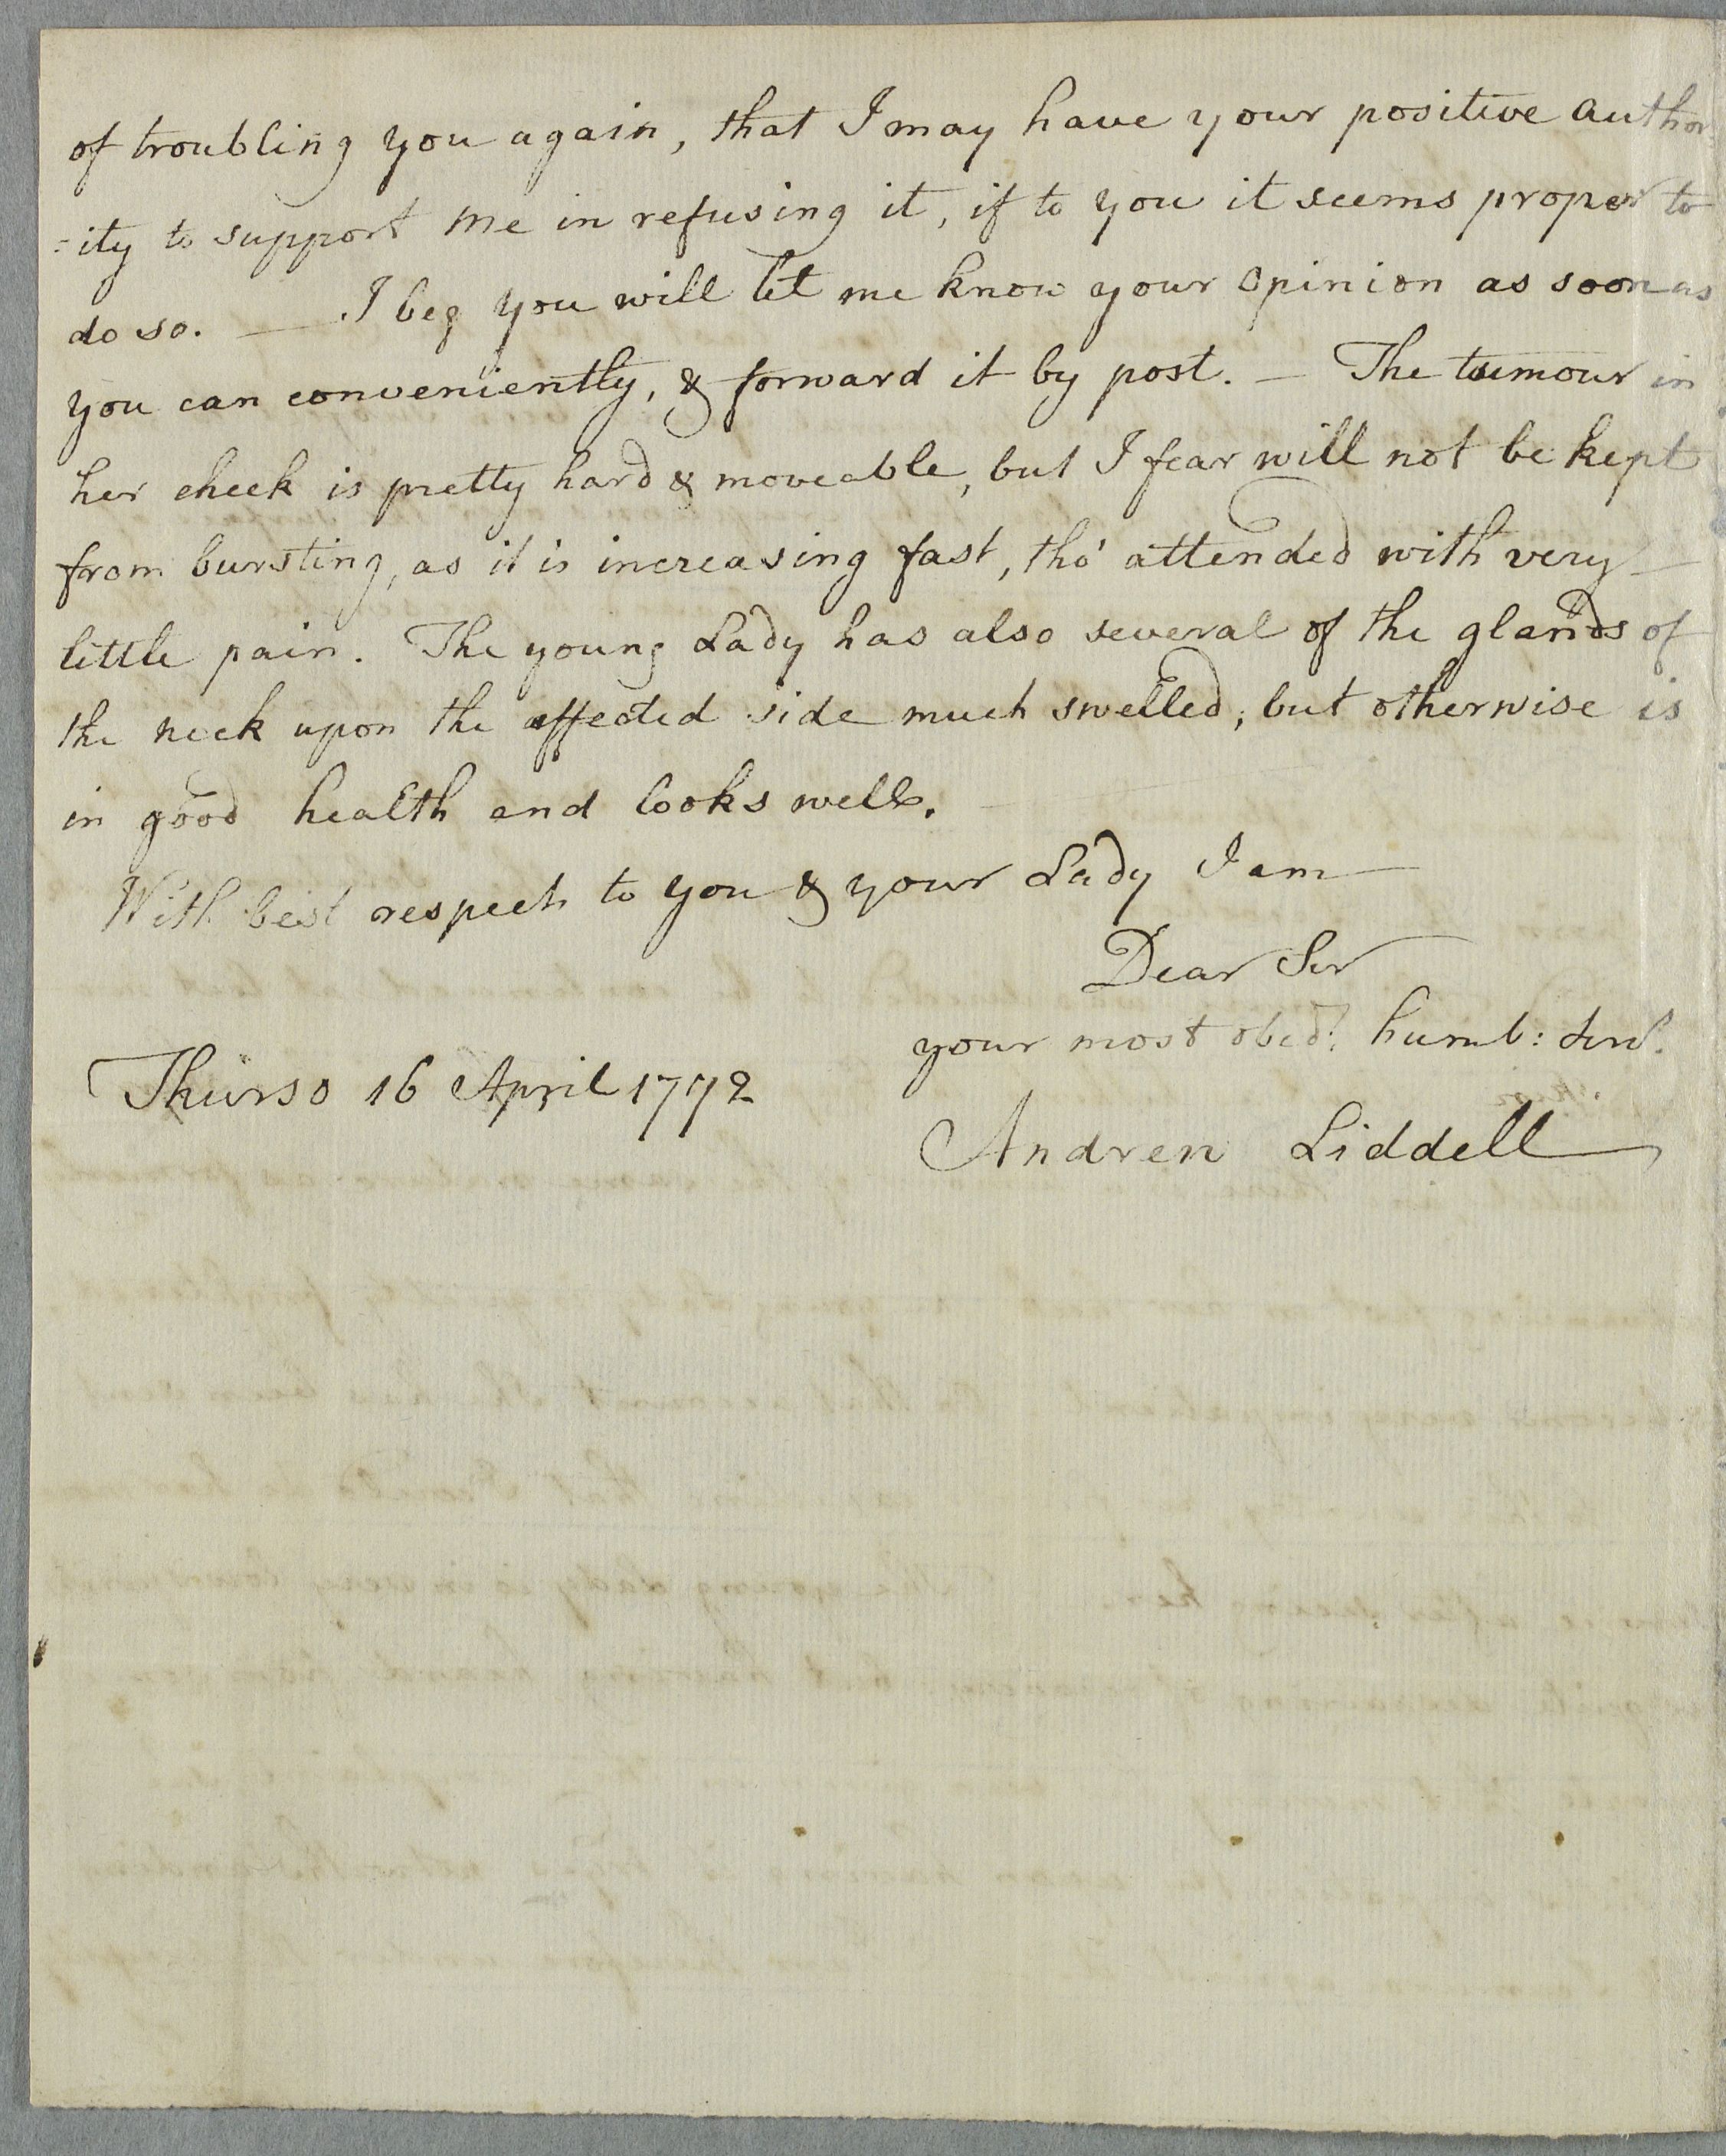 of troubling you again, that I may have your positive author
=ity to support me in refusing it, if to you it seems proper to
do so. — I beg you will let me know your opinion as soon as
you can conveniently, & forward it by post. — The tumour in
her cheek is pretty hard & moveable, but I fear will not be kept
from bursting, as it is increasing fast, tho' attended with very
little pain. The young Lady has also several of the glands of
the neck upon the affected side much swelled; but otherwise is
in good health and looks well.
With best respects to you & your Lady I am
Dear Sir
your most obed: humb: serv.
Thurso 16 April 1772
Andrew Liddell